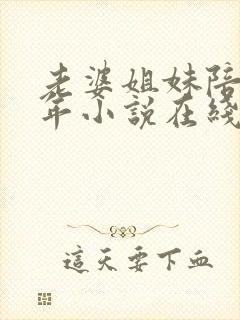 老婆姐妹陪
年小說在綫
這天要下血